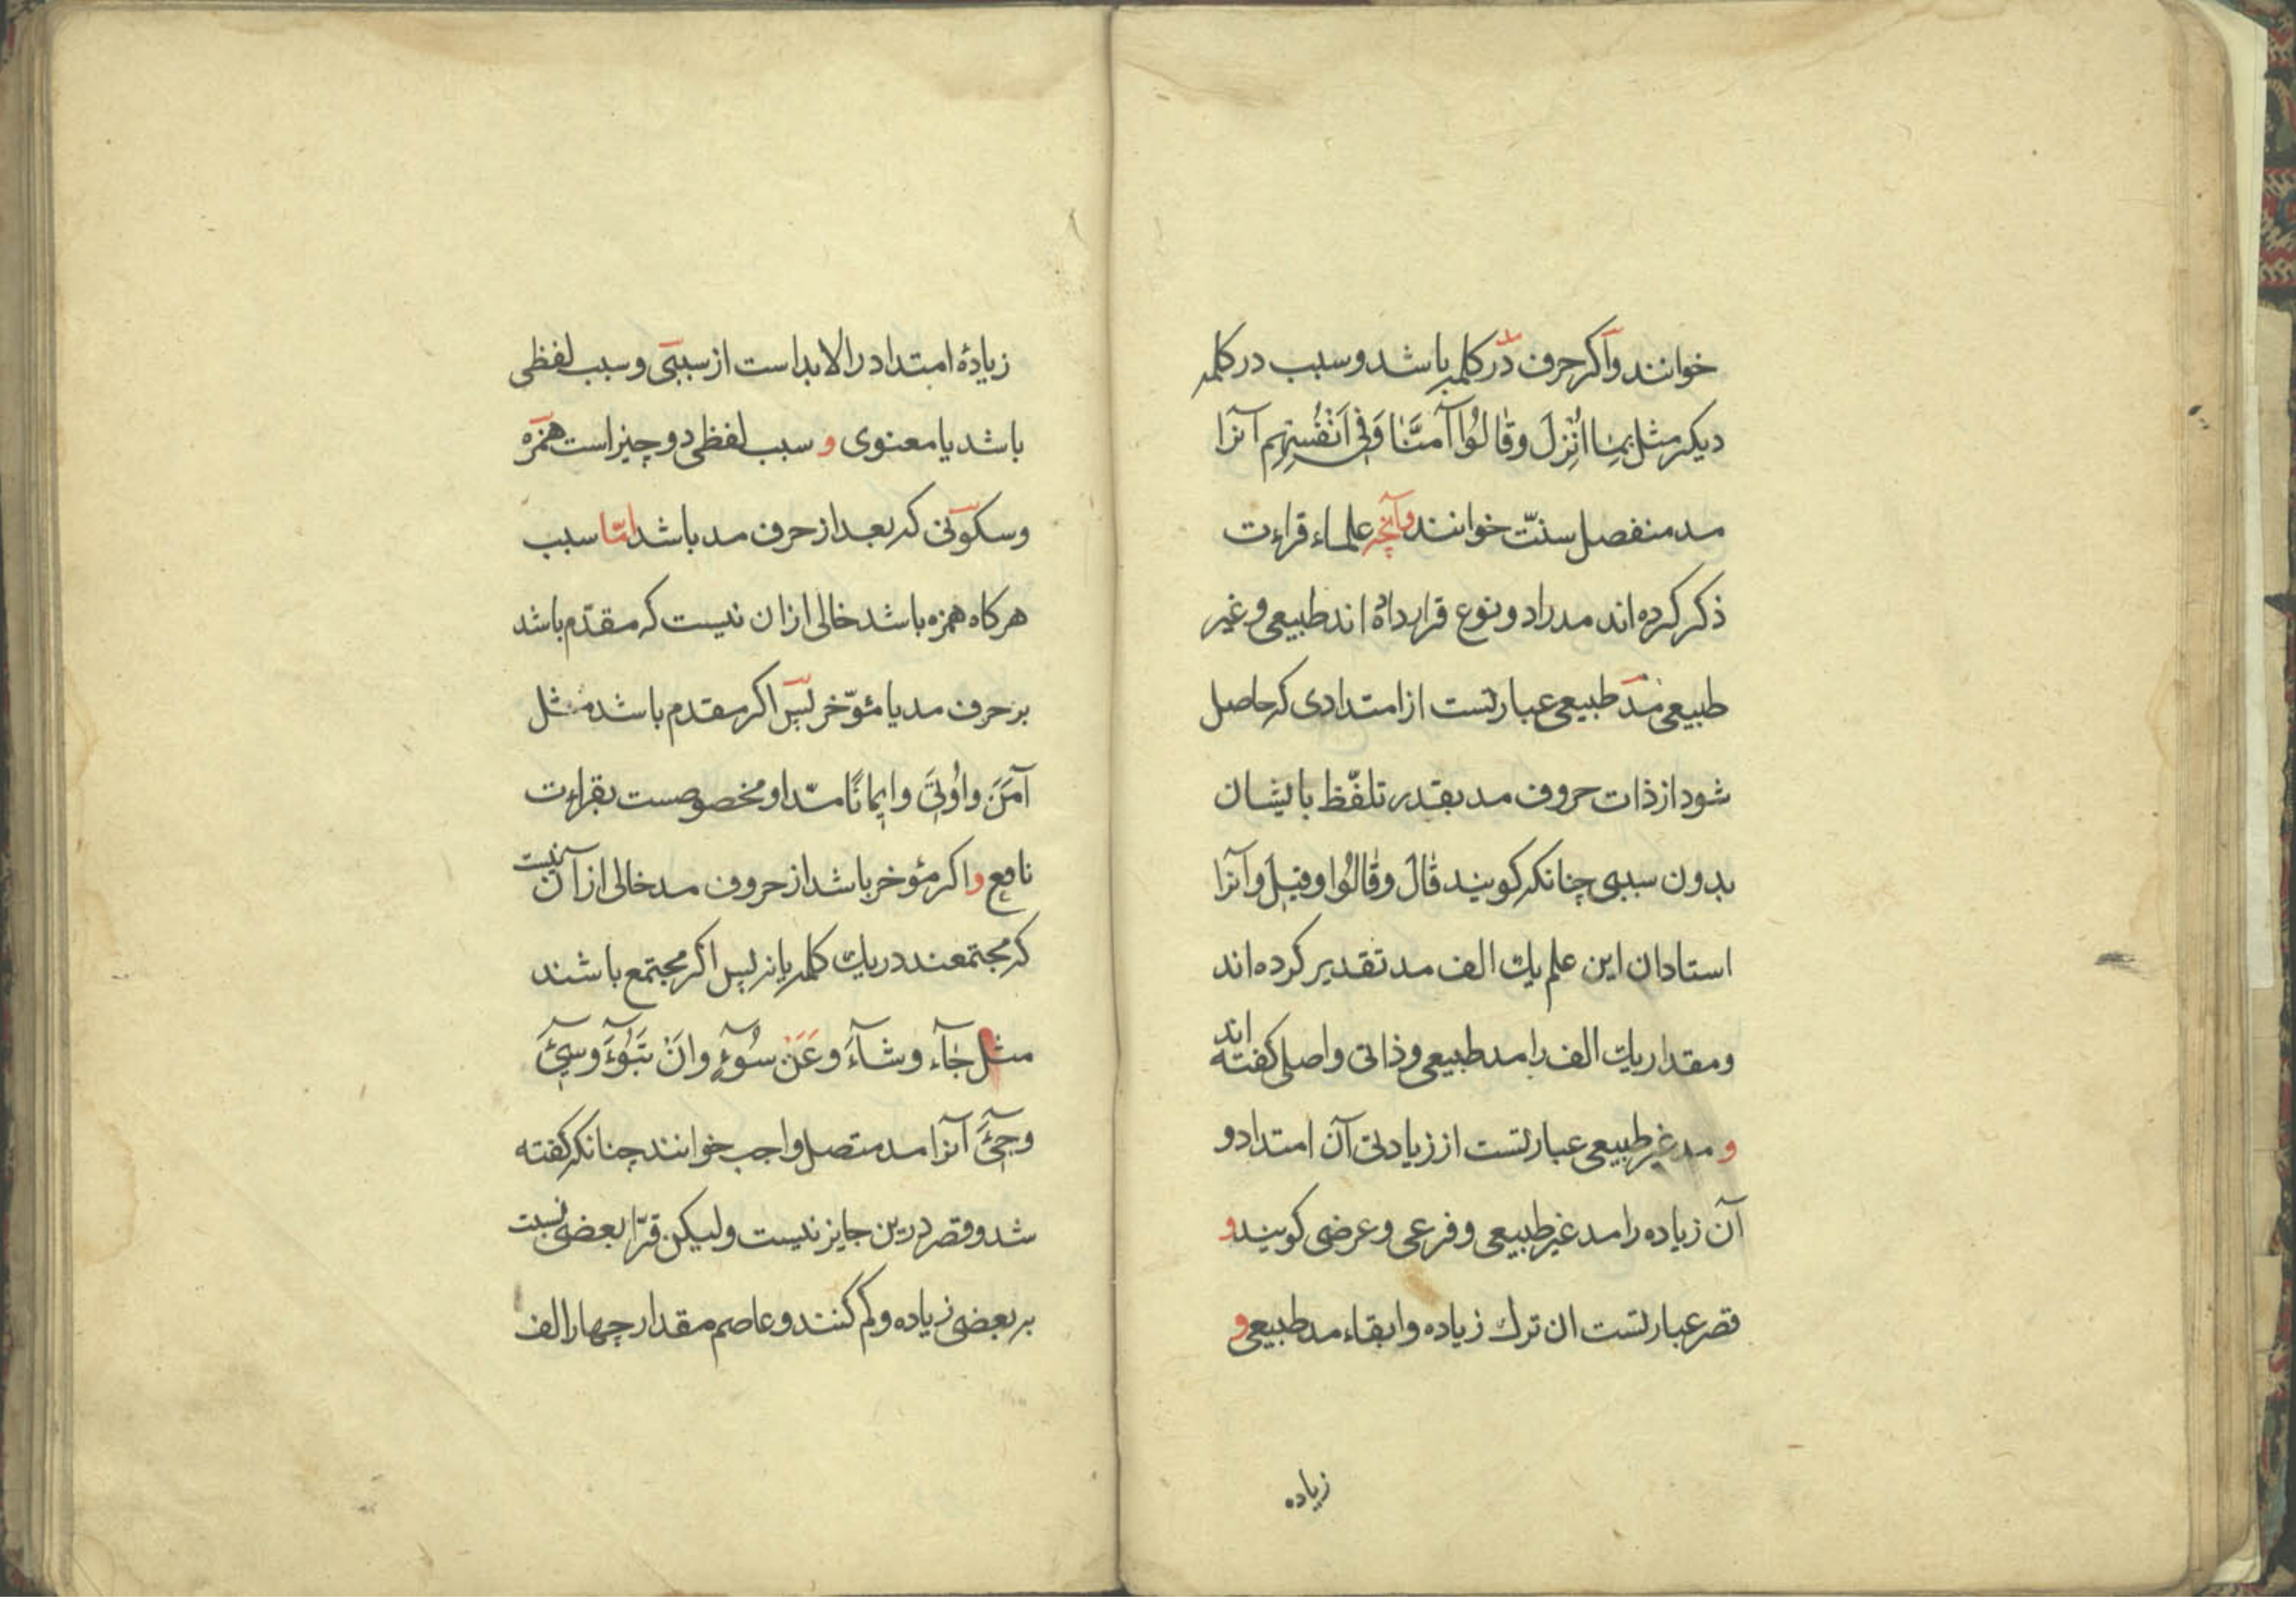 خوانند واکر حرف در کلمه باشد وسبب در کلمه
دیکر مثل بِمٰا اُنْزِلَ وقٰالُوا آمَنَّا وَفِی اَنْفُسِهِم آنرا
مد منفصل سنّت خوانند وآنچه علماء قراءت
ذکر کرده اند مد را دو نوع قرار داده اند طبیعی وغیر
طبیعی مدّ طبیعی عبارتست از امتدادی که حاصل
شود از ذات حروف مد بقدر تلفّظ بایشان
بدون سببی چنانکه کویند قٰالَ وقٰالُوا وقیلَ وآنرا
استادان این علم یك الف مد تقدیر کرده اند
ومقدار یك الف را مد طبیعی وذاتی واصلی کفته اند
و مد غیر طبیعی عبارتست از زیادتی آن امتداد و
آن زیاده را مد غیر طبیعی وفرعی وعرضی کویند و
قصر عبارتست ان ترك زیاده وابقاء مد طبیعی و
زیاده
زیادۀ امتداد را لابد است از سببی وسبب لفظی
باشد یا معنوی و سبب لفظی دو چیز است همزه
وسکونی که بعد از حرف مد باشد امّا سبب
هرکاه همزه باشد خالی ازان نیست که مقدّم باشد
بر حرف مد یا مئوّخر پس اکر مقدم باشد مثل
آمَنَ واُوتِیَ وایمانًا مدّ او مخصوصست بقراءت
نافع واکر مؤخر باشد از حروف مد خالی از آن نیست
که مجتمعند در یك کلمه یا نه پس اکر مجتمع باشند
مثل جٰآء وشآءَ وعَنْ سُوۤءٍ وانْ تَبُوۤءَ وسیۤئَ
وجیۤئَ آنرا مد متصل واجب خوانند چنانکه کفته
شد وقصر درین جایز نیست ولیکن قرّا بعضی نسبت
بر بعضی زیاده وکم کنند وعاصم مقدار چهار الف